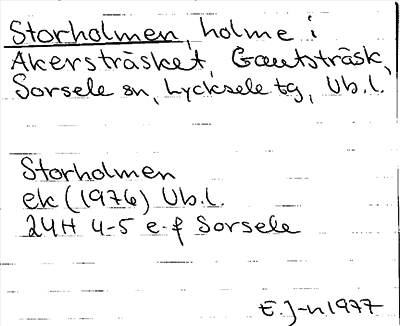 Storholmen, holme i
Akersträsket, Gautsträsk,
Sorsele sn, Lycksele tg, Vb.l.
Storholmen
ek (1976) Vb.l.
24H 4-5 e-f Sorsele
E. J-n 1977